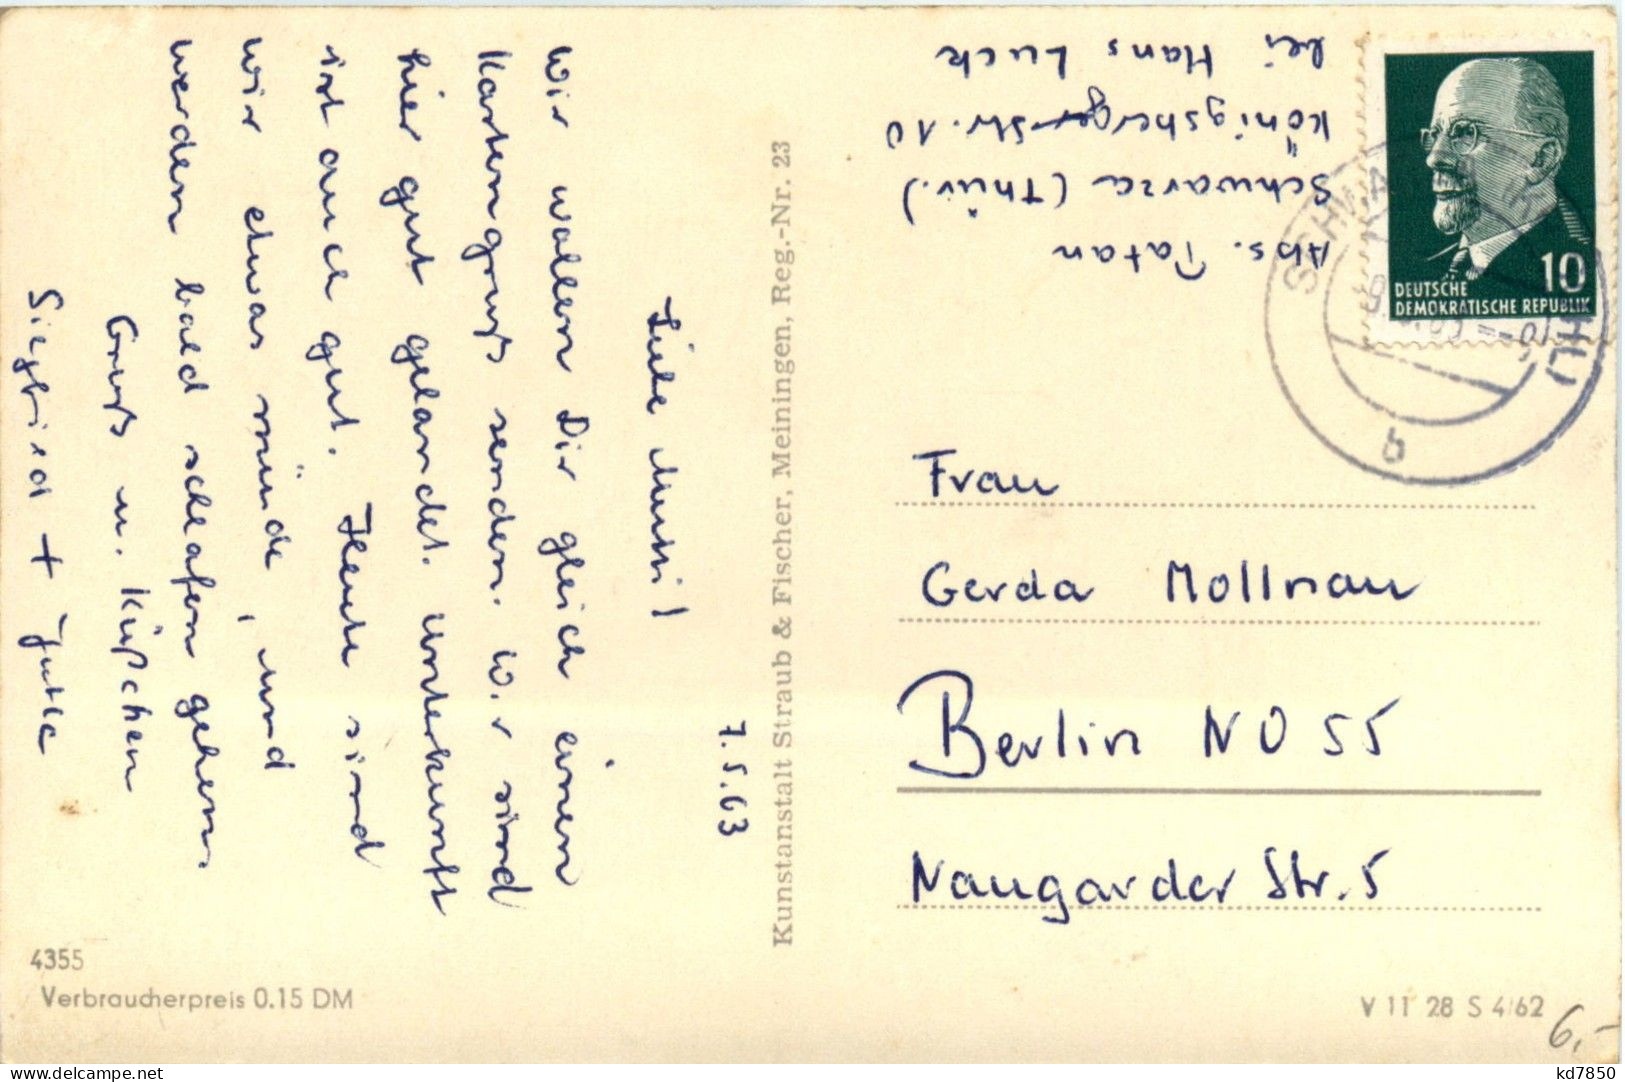 7.5.63
Liebe Mutti!
Wir wollen Dir gleich einen
Kartengruß senden. Wir sind
hier gut gelandet. Unterkunft
ist auch gut. Heute sind
wir etwas müde, und
werden bald schlafen gehen.
Gruß u. Küßchen
Siegfried + Jutta
Kunstanstalt Straub & Fischer, Meiningen, Reg.-Nr. 23
Abs. Tatan
Schwarza (Thür.)
Königsberger Str. 10
bei Hans Luck
10
DEUTSCHE
DEMOKRATISCHE REPUBLIK
b
Frau
Gerda Mollnau
Berlin NO 55
Naugarder Str. 5
4355
Verbraucherpreis 0.15 DM
V 11 28 S 4/62
6,-
www.delcampe.net
kd7850